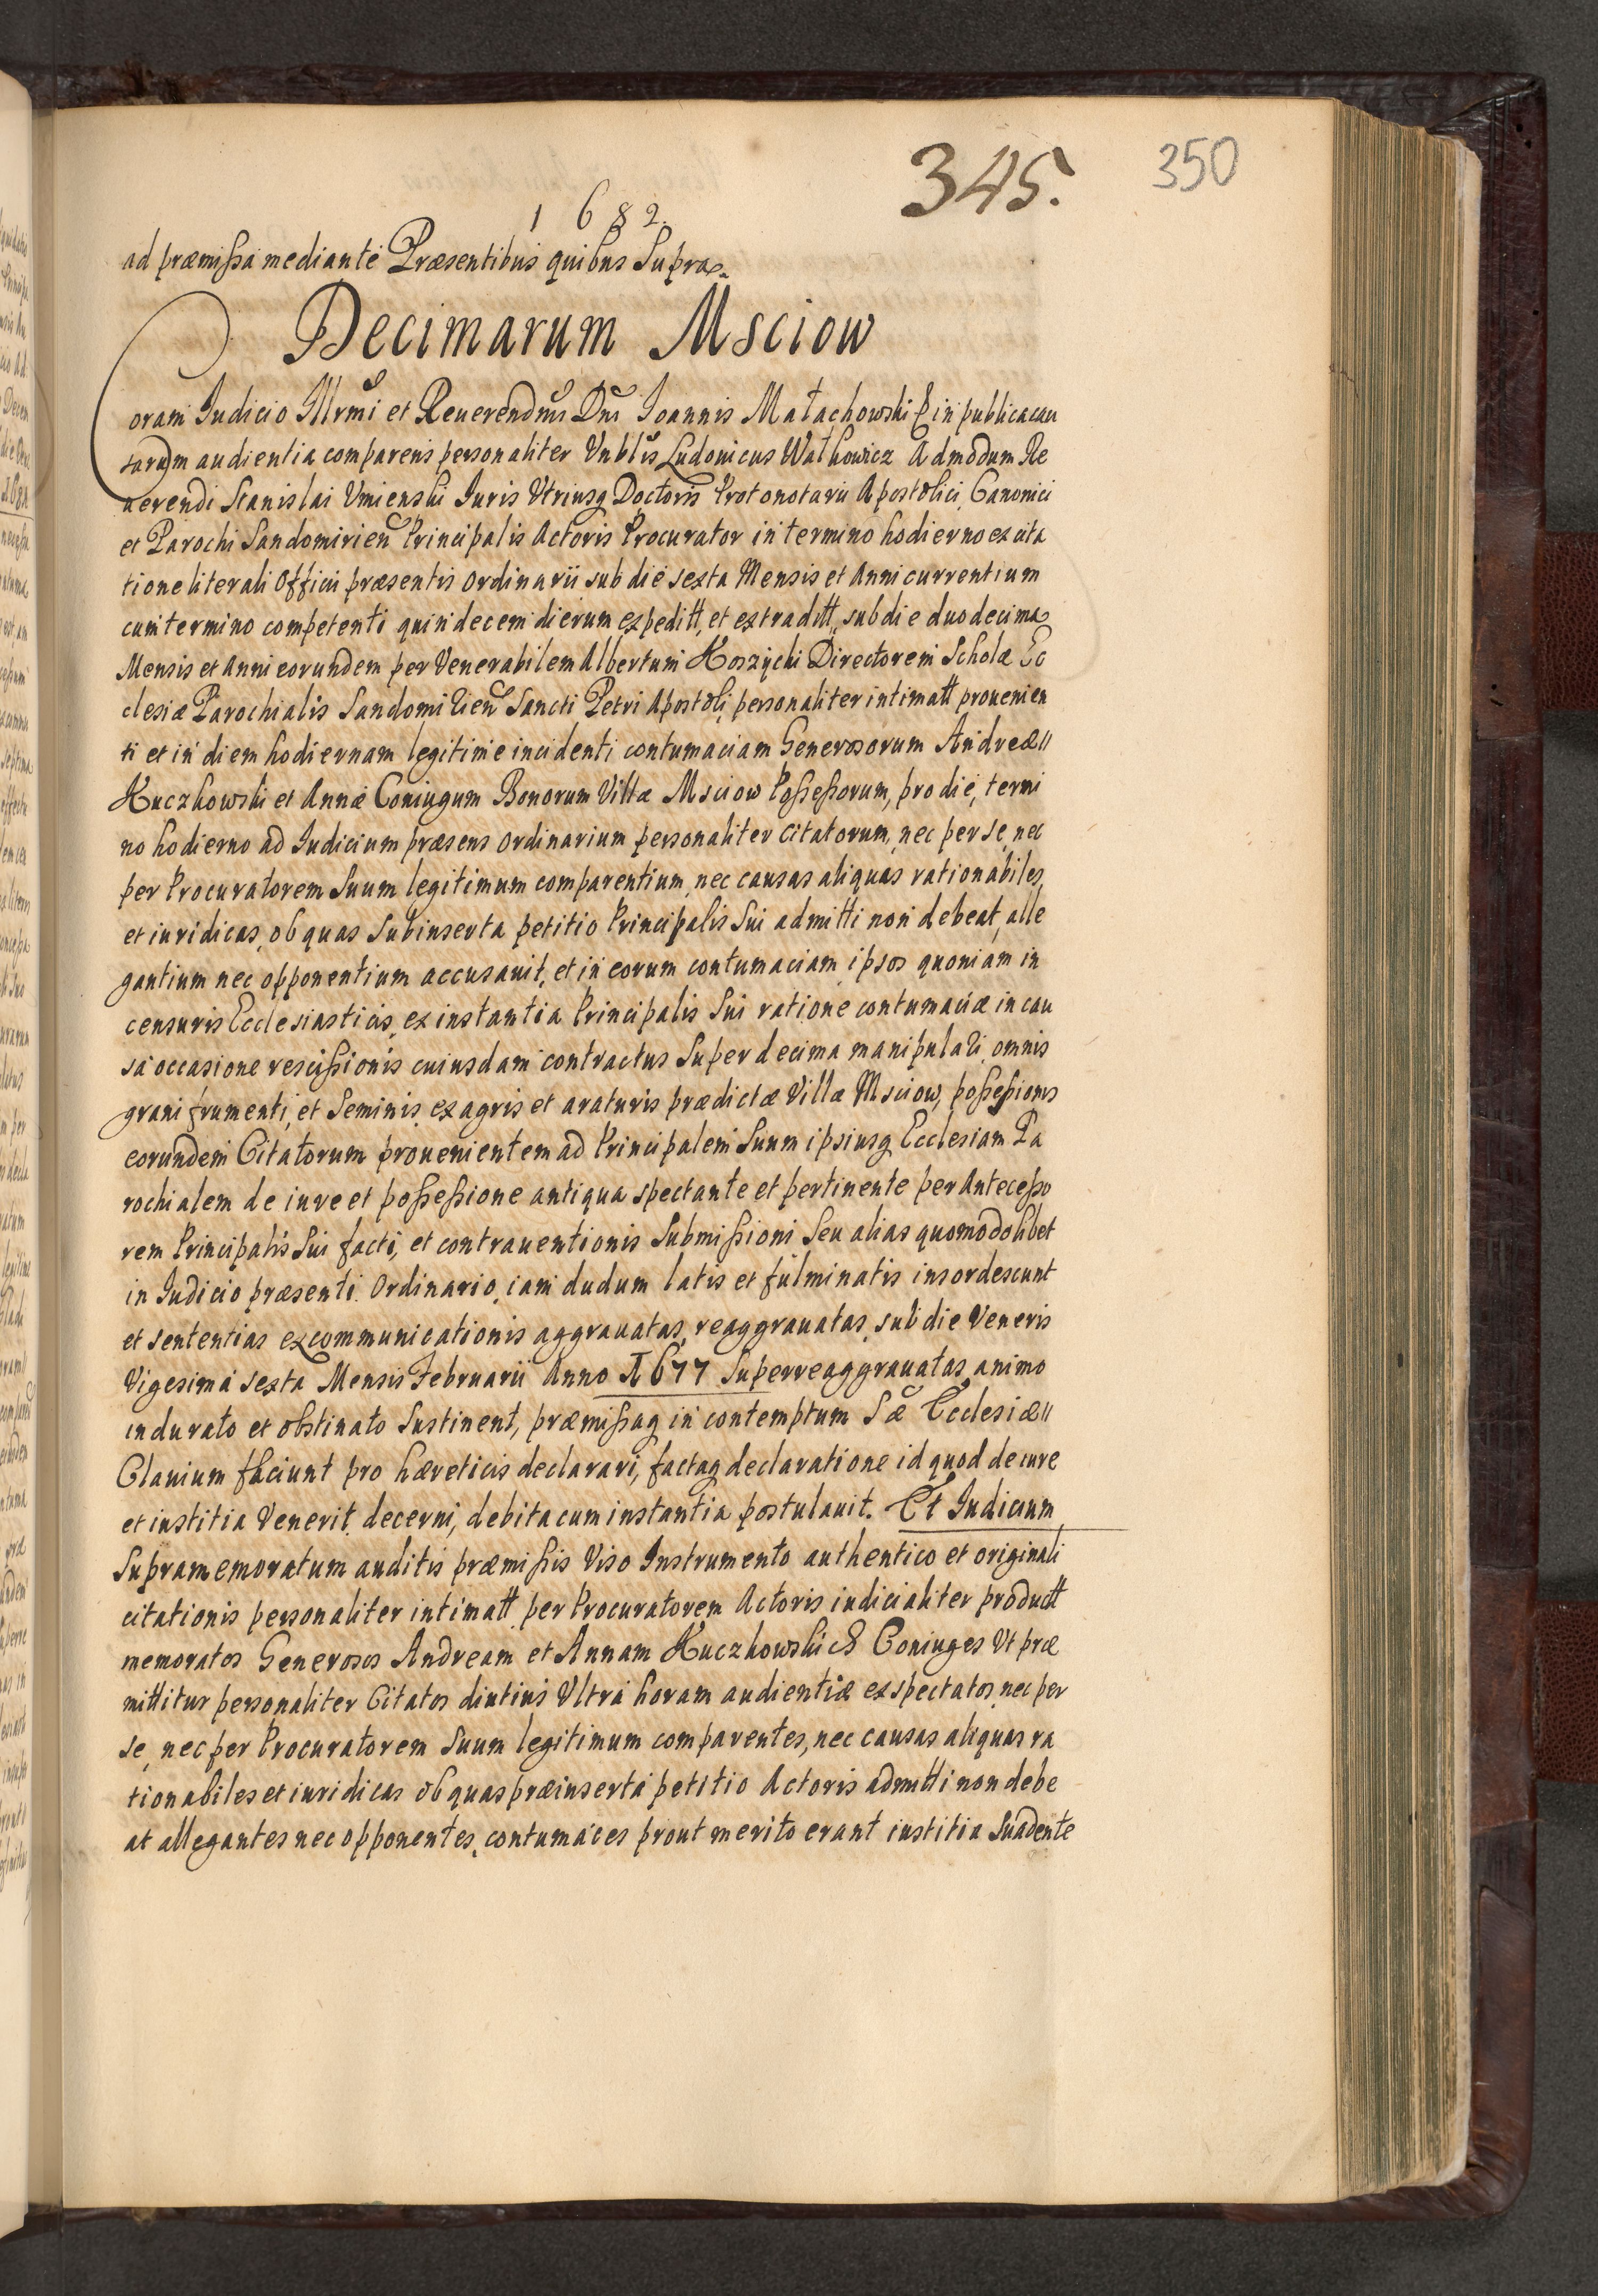 345. 350
1 6 8 2.
ad præmißa mediante Præsentibus quibus Supra.
Decimarum Msciow
Coram Iudicio Illrmi et Reuerendmi Dni Ioannis Małachowski in publica cau
sarum audientia comparens personaliter Vnblis Ludouicus Wałkowicz Admodum Re
uerendi Stanislai Vmienski Iuris Vtriusq Doctoris Protonotarii Apostolici Canonici
et Parochi Sandomirien Principalis Actoris Procurator in termino hodierno ex cita
tione literali Officii præsentis Ordinarii sub die sexta Mensis et Anni currentium
cum termino competenti quindecem dierum expeditt, et extraditt, sub die duodecima
Mensis et Anni eorundem per Venerabilem Albertum Koszycki Directorem Scholæ Ec
clesiæ Parochialis Sandomirien Sancti Petri Apostoli personaliter intimatt prouenien
ti et in diem hodiernam legitime incidenti contumaciam Generosorum Andreæ
Kuczkowski et Annæ Coniugum Bonorum Villæ Msciow Poßeßorum, pro die, termi
no hodierno ad Iudicium præsens Ordinarium personaliter citatorum, nec per se, nec
per Procuratorem Suum legitimum comparentium, nec causas aliquas rationabiles
et iuridicas, ob quas Subinserta petitio Principalis Sui admitti non debeat, alle
gantium nec opponentium accusauit, et in eorum contumaciam ipsos quoniam in
censuris Ecclesiasticis, ex instantia Principalis Sui ratione contumaciæ in cau
sa occasione rescißionis cuiusdam contractus Super decima manipulari omnis
grani frumenti, et Seminis, ex agris et araturis prædictæ Villæ Msciow, poßeßionis
eorundem Citatorum prouenientem ad Principalem Suum ipsiusq Ecclesiam Pa
rochialem de iure et poßeßione antiqua spectante et pertinente per Anteceßo
rem Principalis Sui facti, et contrauentionis Submißioni Seu alias quomodolibet
in Iudicio præsenti Ordinario, iam dudum latis et fulminatis insordescunt
et sententias excommunicationis aggrauatas, reaggrauatas, sub die Veneris
Vigesima sexta Mensis Februarii Anno 1677 Superreaggrauatas, animo
indurato et obstinato Sustinent, præmißaq in contemptum Sæ Ecclesiæ
Clauium faciunt pro hæreticis declarari, factaq declaratione id quod de iure
et iustitia Venerit, decerni, debita cum instantia postulauit. Et Iudicium
Supramemoratum auditis præmißis Viso Instrumento authentico et originali
citationis personaliter intimatt per Procuratorem Actoris iudicialiter productt
memoratos Generosos Andream et Annam Kuczkowskich Coniuges Vt præ
mittitur personaliter Citatos diutius Vltra horam audientiæ exspectatos, nec per
se, nec per Procuratorem Suum legitimum comparentes, nec causas aliquas ra
tionabiles et iuridicas ob quas præinserta petitio Actoris admitti non debe
at allegantes nec opponentes, contumaces prout merito erant iustitia Suadente